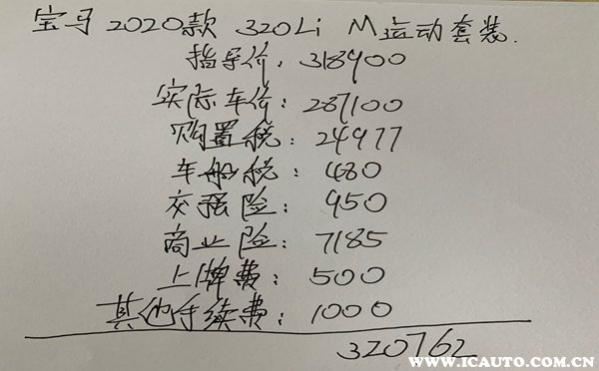 宝马2020款 320Li M运动套装.
指导价: 318900
实际车价: 287100
购置税: 24977
车船税: 480
交强险: 950
商业险: 7185
上牌费: 500
其他手续费: 1000
320762
WWW.ICAUTO.COM.CN